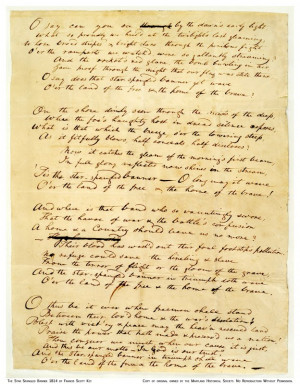 O say can you see by the dawn's early light
What so proudly we hail'd at the twilight's last gleaming,
Whose broad stripes & bright stars through the perilous fight
O'er the ramparts we watch'd, were so gallantly streaming?
And the rocket's red glare, the bomb bursting in air,
Gave proof through the night that our flag was still there
O say does that star-spangled banner yet wave
O'er the land of the free & the home of the brave?
On the shore dimly seen through the mists of the deep,
Where the foe's haughty host in dread silence reposes,
What is that which the breeze, o'er the towering steep,
As it fitfully blows, half conceals, half discloses?
Now it catches the gleam of the morning's first beam,
In full glory reflected now shines in the stream,
'Tis the star-spangled banner - O long may it wave
O'er the land of the free & the home of the brave!
And where is that band who so vauntingly swore,
That the havoc of war & the battle's confusion
A home & a Country should leave us no more?
Their blood has wash'd out their foul footstep's pollution.
No refuge could save the hireling & slave
From the terror of flight or the gloom of the grave,
And the star-spangled banner in triumph doth wave
O'er the land of the free & the home of the brave.
O thus be it ever when freemen shall stand
Between their lov'd home & the war's desolation!
Blest with vict'ry & peace may the heav'n rescued land
Praise the power that hath made & preserv'd us a nation!
Then conquer we must, when our cause it is just,
And this be our motto - "In God is our trust,"
And the star-spangled banner in triumph shall wave
O'er the land of the free & the home of the brave.
THE STAR SPANGLED BANNER 1814 BY FRANCIS SCOTT KEY
COPY OF ORIGINAL OWNED BY THE MARYLAND HISTORICAL SOCIETY. NO REPRODUCTION WITHOUT PERMISSION